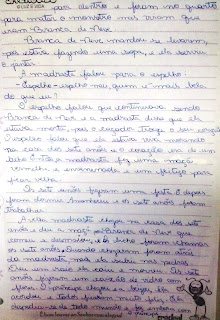 para dentro e foram no quarto
para matar o monstro mas viram que
era Branca de Neve.
Branca de Neve mandou se lavarem,
pois estava fazendo uma sopa, e ela serviu
o jantar.
A madrasta falou para o espelho
- Espelho - espelho meu, quem é mais bela
do que eu?
O espelho falou que continuava sendo
Branca de Neve e a madrasta disse que ela
estava morta pois o caçador trouxe o seu
espelho falou que ela estava viva morando
na casa dos sete anões, coração era de um
A madrasta fez uma maçã
vermelha e envenenada e um
para
Os sete anões fizeram uma festa. E depois
foram dormir. Amanheceu e os sete anões foram
trabalhar.
A ela madrasta chegou na casa dos sete
anões e deu a maçã para Branca de Neve que
comeu e desmaiou, e os bichos foram chamar
os sete anões. Quando chegaram foram atrás
da madrasta mas ela subiu nas pedras
e caiu e morreu. Os sete
anões fizeram um caixão de vidro com
flores. O príncipe chegou e a beijou. Ela
acordou e todos ficaram muito feliz. Ela
despediu-se de todo mundo e foi embora com
o príncipe